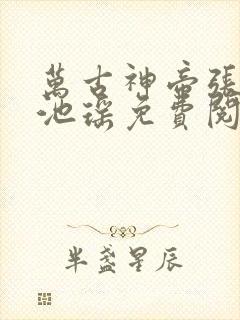 萬古神帝張
池瑤免費閱
半盞星辰